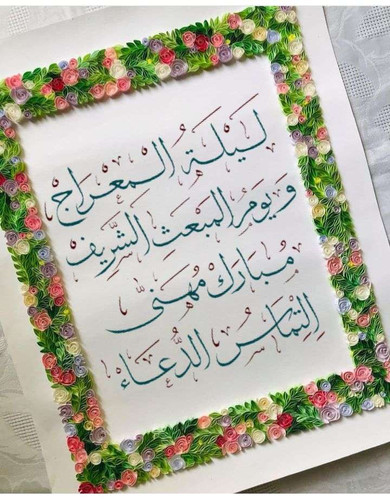 لَيْلَة المِعْرَاج
وَيَوْمُ المَبْعَثِ الشَّرِيْف
مُبَارَك مُهَنَّى
اِلتِمَاسُ الدُّعَاء